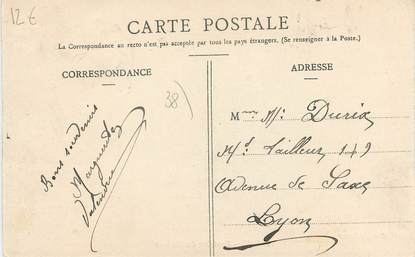 12 €
CARTE POSTALE
La Correspondance au recto n'est pas acceptée par tous les pays étrangers. (Se renseigner à la Poste.)
CORRESPONDANCE
38)
Bons souvenirs
Marguerite
ADRESSE
M
Durix
Md Tailleur 149
Avenue de Saxe
Lyon